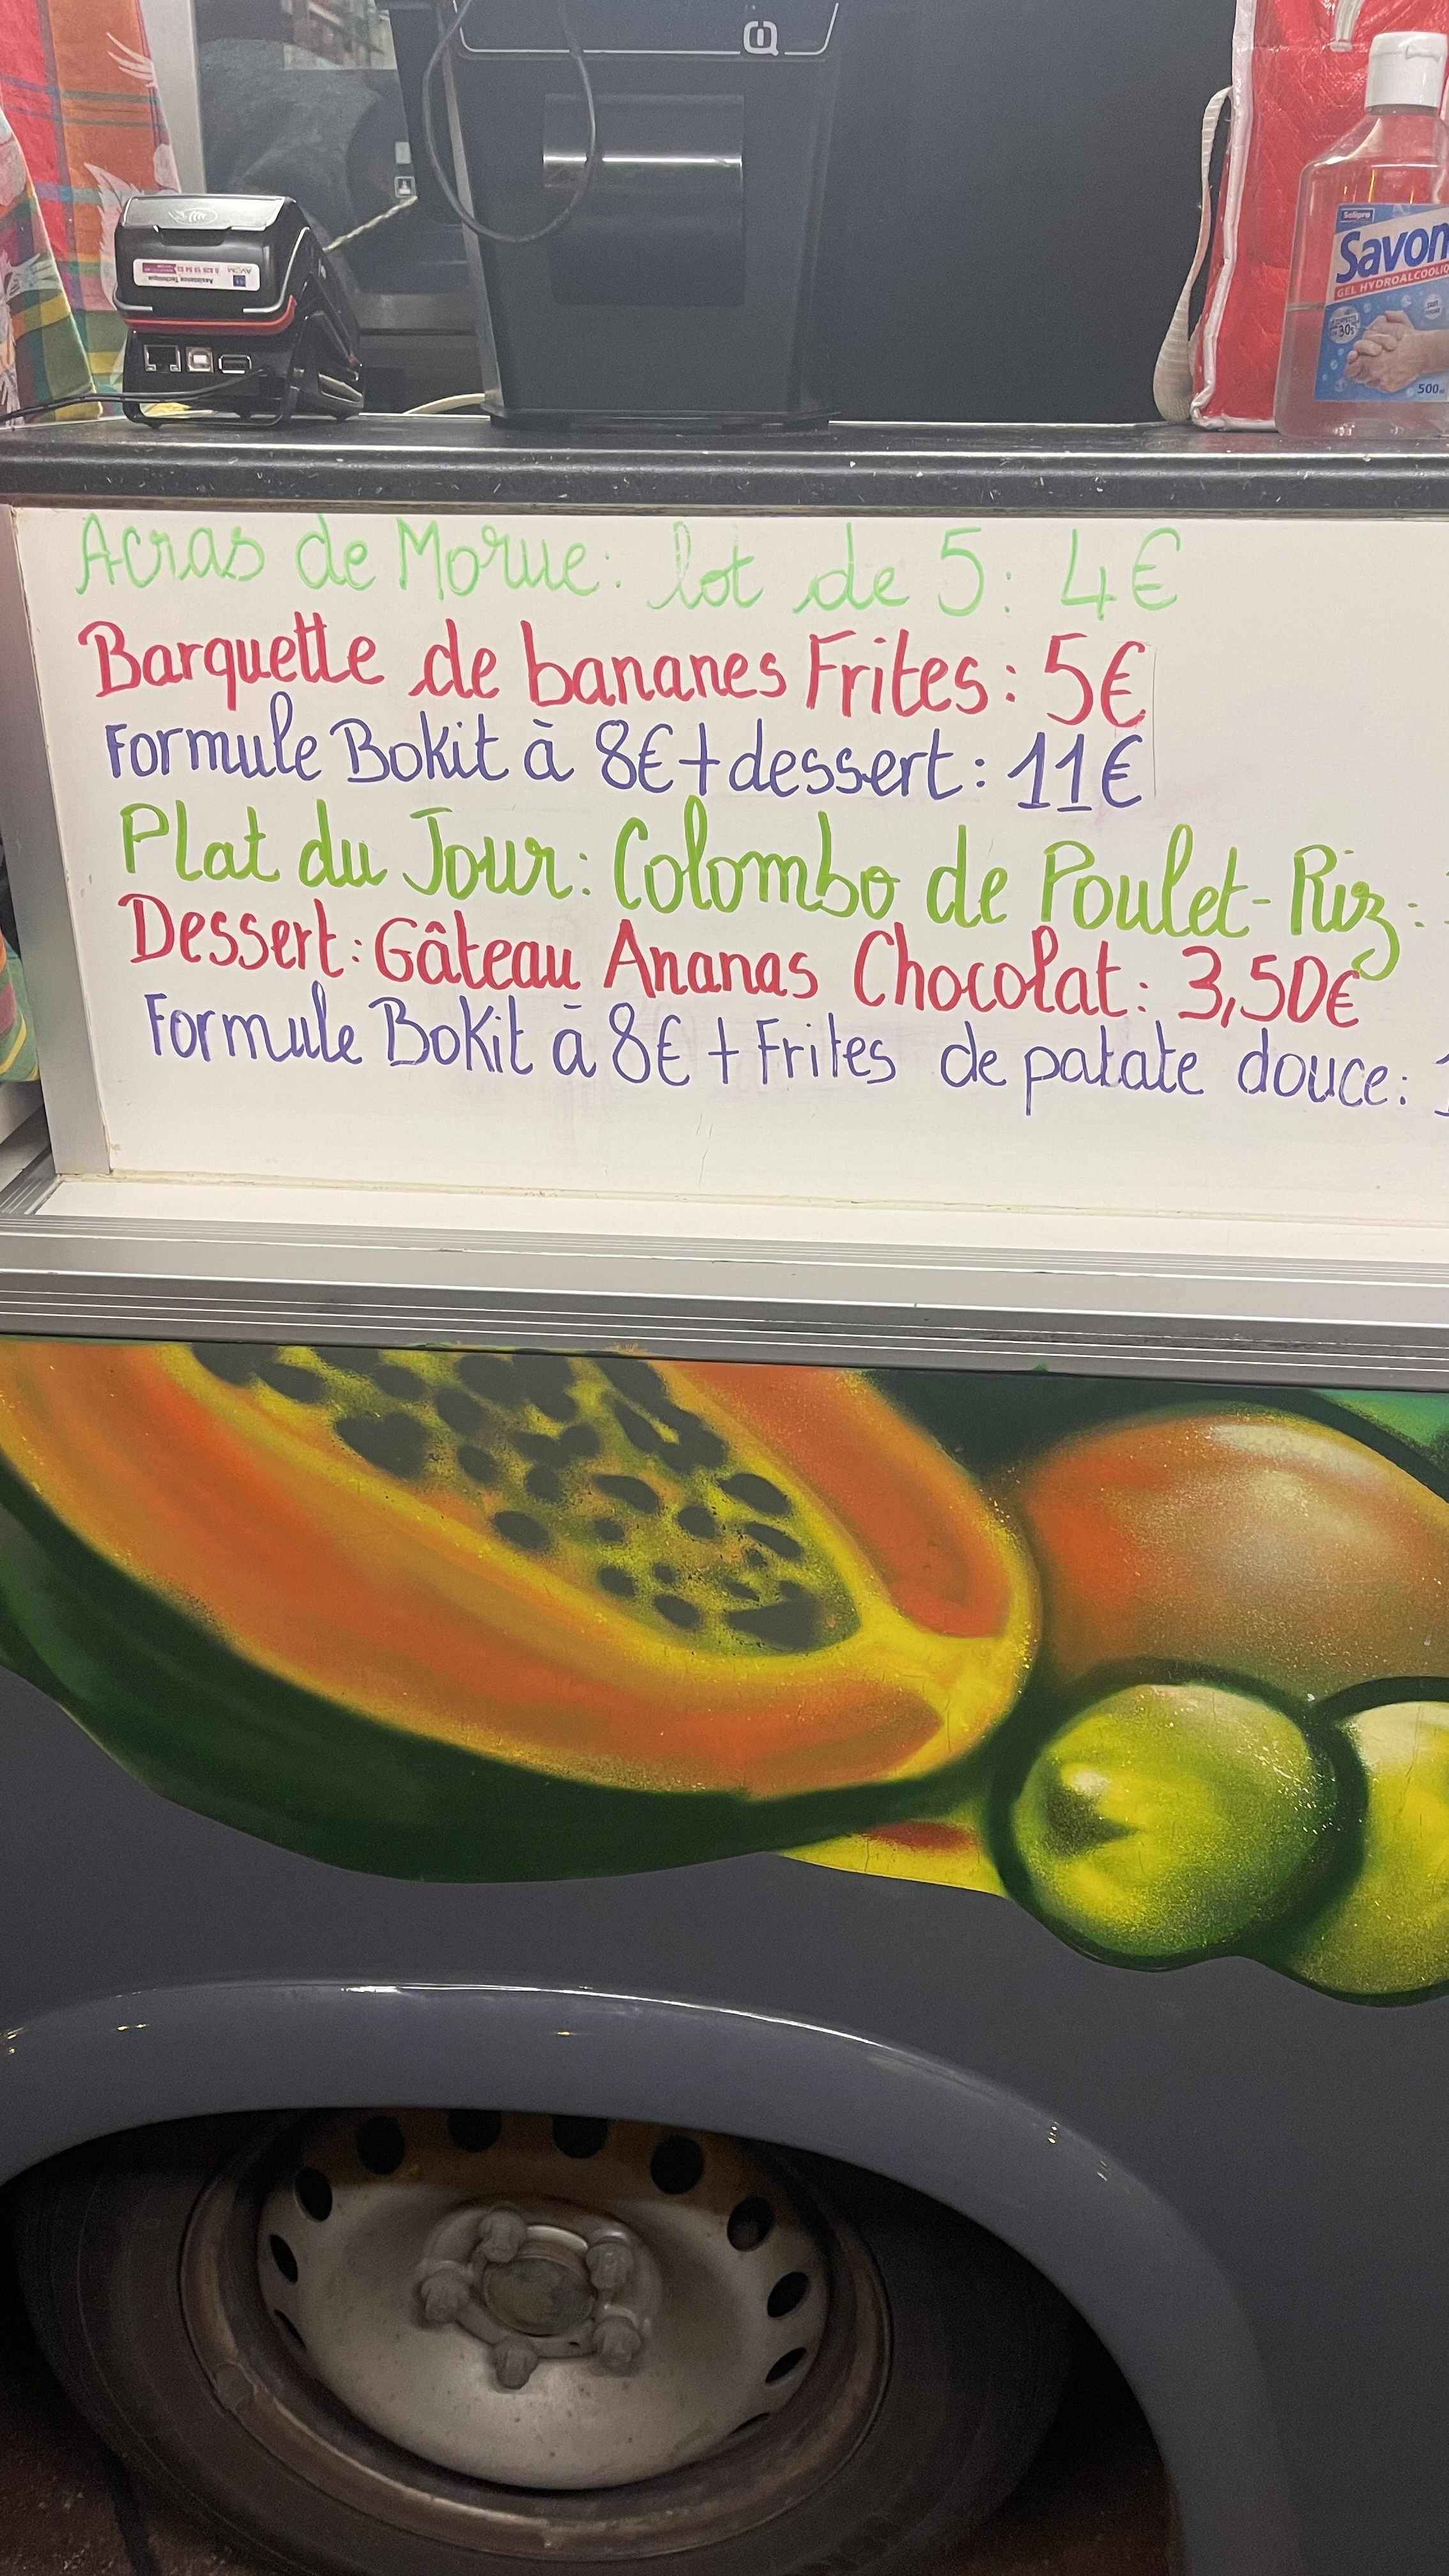 Savon
GEL HYDROALCOOLIQ
30s
500
Acras de Morue: lot de 5: 4€
Barquette de bananes Frites: 5€
Formule Bokit à 8€+dessert: 11€
Plat du Jour: Colombo de Poulet-Riz:
Dessert: Gâteau Ananas Chocolat: 3,50€
Formule Bokit à 8€ + Frites de patate douce: 1